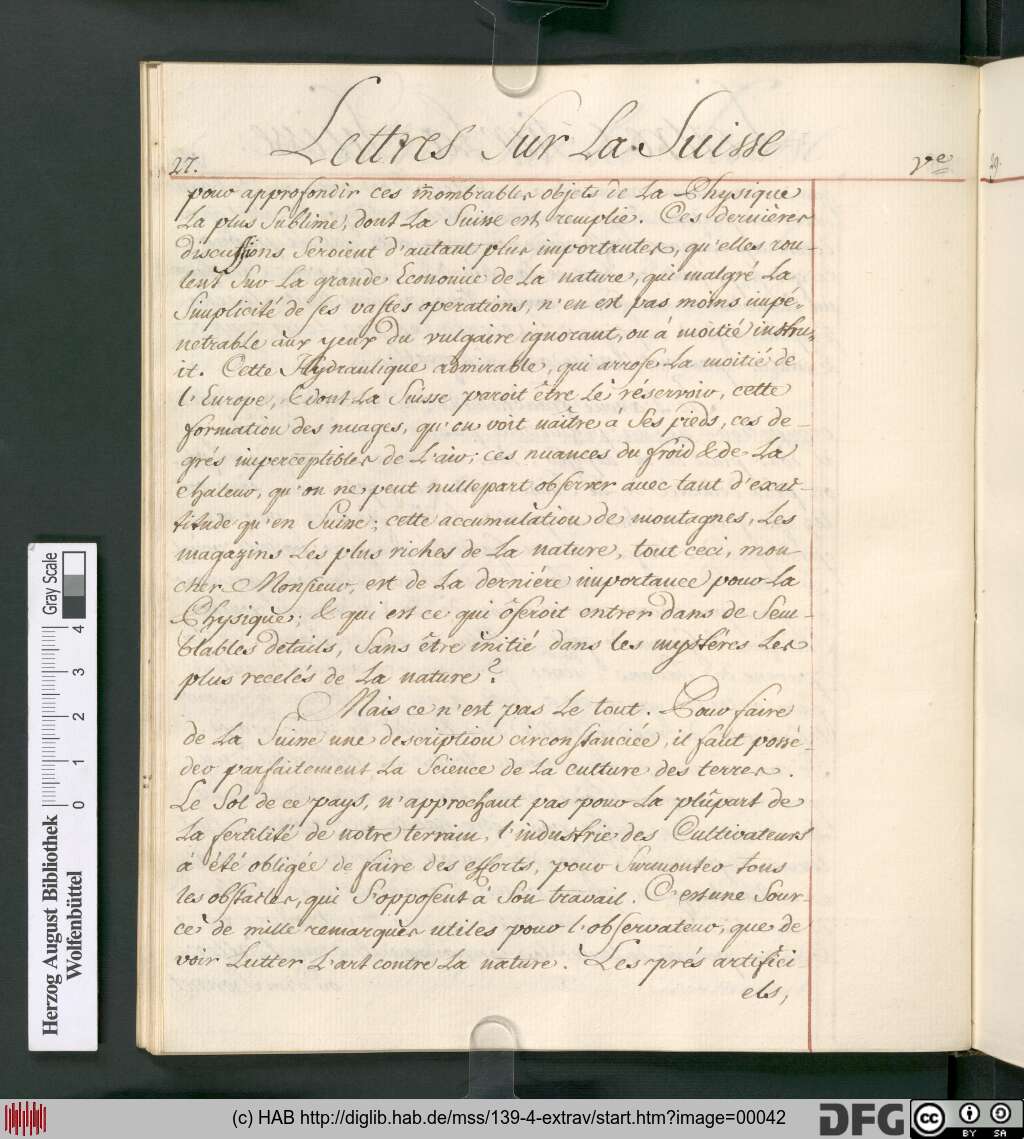 Lettres sur la Suisse
27.
Ve
pour approfondir ces innombrables objets de la Physique
la plus sublime, dont la Suisse est remplie. Ces dernières
discussions seroient d'autant plus importantes, qu'elles rou-
lent sur la grande Economie de la nature, qui malgré la
simplicité de ses vastes operations, n'en est pas moins impé-
netrable aux yeux du vulgaire ignorant, ou à moitié instru-
it. Cette Hydraulique admirable, qui arrose la moitié de
l'Europe, & dont la Suisse paroit être le réservoir, cette
formation des nuages, qu'on voit naître à ses pieds, ces de-
grés imperceptibles de l'air; ces nuances du froid & de la
chaleur, qu'on ne peut nullepart observer avec tant d'exac-
titude qu'en Suisse; cette accumulation de montagnes, les
magazins les plus riches de la nature, tout ceci, mon
cher Monsieur, est de la derniére importance pour la
Physique; & qui est ce qui ôseroit entrer dans de sem-
blables details, sans être initié dans les mystéres les
plus recelés de la nature?
Mais ce n'est pas le tout. Pour faire
de la Suisse une description circonstanciée, il faut possé-
der parfaitement la Science de la culture des terres.
Le Sol de ce pays, n'approchant pas pour la plûpart de
la fertilité de notre terrain, l'industrie des Cultivateurs
à été obligée de faire des efforts, pour surmonter tous
les obstacles, qui s'opposent à son travail. C'est une sour-
ce de mille remarques utiles pour l'observateur, que de
voir lutter l'art contre la nature. Les prés artifici-
els,
Herzog August Bibliothek
Wolfenbüttel
0 1 2 3 4
Gray Scale
(c) HAB http://diglib.hab.de/mss/139-4-extrav/start.htm?image=00042
DFG
cc BY SA